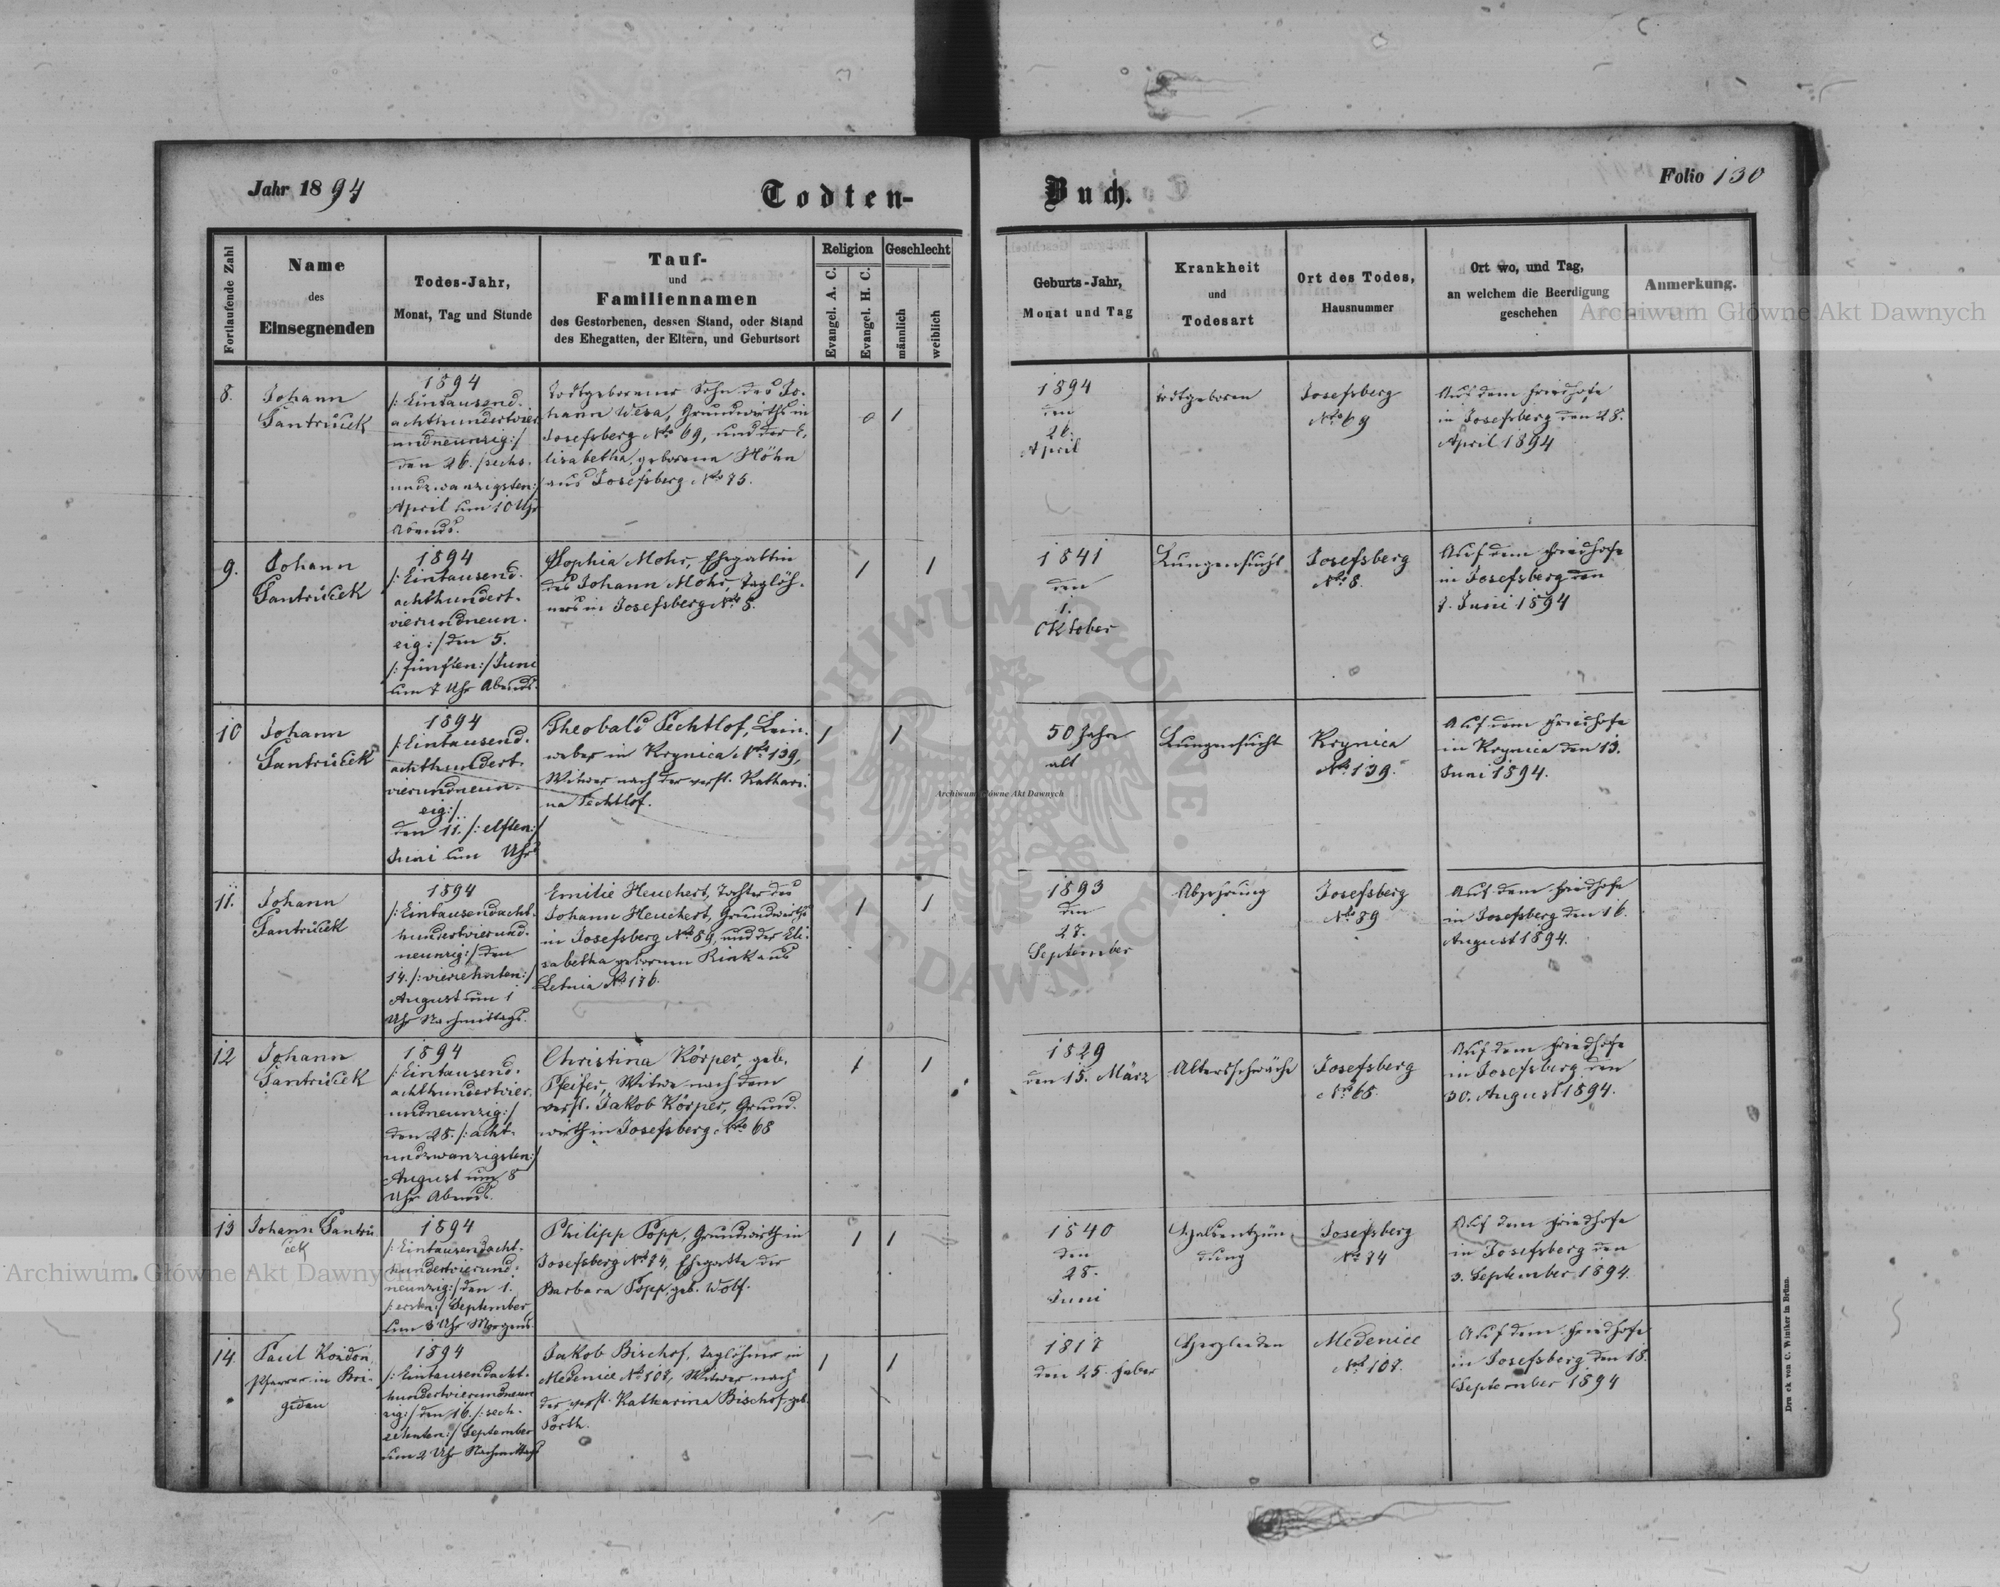 Jahr 1894
Todten-
Buch.
Folio 130
Fortlaufende Zahl
Name
des
Einsegnenden
Todes-Jahr,
Monat, Tag und Stunde
Tauf-
und
Familiennamen
des Gestorbenen, dessen Stand, oder Stand
des Ehegatten, der Eltern, und Geburtsort
Religion
Evangel. A. C.
Evangel. H. C.
Geschlecht
männlich
weiblich
Geburts-Jahr,
Monat und Tag
Krankheit
und
Todesart
Ort des Todes,
Hausnummer
Ort wo, und Tag,
an welchem die Beerdigung
geschehen
Anmerkung.
8.
Johann
Santrůček
1894
/:Eintausend-
achthundertvier
undneunzig:/
den 26. /sechs-
undzwanzigsten:/
April um 10 Uhr
Abends.
Todtgeborener Sohn des Jo-
hann Wesa, Grundwirths in
Josefsberg No 69, und der E-
lisabetha, geborene Höhn
aus Josefsberg No 75.
0 1
1894
den
26.
April
todtgeboren
Josefsberg
No 69
Auf dem Friedhofe
in Josefsberg den 28.
April 1894
9.
Johann
Santrůček
1894
/:Eintausend-
achthundert-
vierundneun-
zig:/ den 5.
/:fünften:/ Juni
um 7 Uhr Abends.
Sophia Mohr, Ehegattin
des Johann Mohr, Taglöh-
ners in Josefsberg No 8.
1 1
1841
den
1.
Oktober
Lungensucht
Josefsberg
No 8.
Auf dem Friedhofe
in Josefsberg den
7. Juni 1894
10
Johann
Santrůček
1894
/:Eintausend-
achthundert-
vierundneun-
zig:/
den 11. /:elften:/
Juni um Uhr
Theobald Pechtlof, Lein-
weber in Krynica No 139,
Witwer nach der verst. Kathari-
na Pechtlof.
1 1
50 Jahre
alt
Lungensucht
Krynica
No 139.
Auf dem Friedhofe
in Krynica den 13.
Juni 1894.
11.
Johann
Santrůček
1894
/:Eintausendacht-
hundertvierund-
neunzig:/ den
14. /:vierzehnten:/
August um 1
Uhr Nachmittags.
Emilie Heuchert, Tochter des
Johann Heuchert, Grundwirths
in Josefsberg No 89, und der Eli-
sabetha geborenen Rink aus
Letnia No 176.
1 1
1893
den
27.
September
Abzehrung
Josefsberg
No 89
Auf dem Friedhofe
in Josefsberg den 16.
August 1894.
12
Johann
Santrůček
1894
/:Eintausend-
achthundertvier-
undneunzig:/
den 28. /:acht-
undzwanzigsten:/
August um 8
Uhr Abends.
Christina Körper, geb.
Pfeifer, Witwe nach dem
verst. Jakob Körper, Grund-
wirth in Josefsberg No 68
1 1
1829
den 15. März
Altersschwäche
Josefsberg
No 68.
Auf dem Friedhofe
in Josefsberg den
30. August 1894.
13
Johann Santrů
ček
1894
/:Eintausendacht-
hundertvierund-
neunzig:/ den 1.
/:ersten:/ September
um 3 Uhr Morgens.
Philipp Popp, Grundwirth in
Josefsberg No 74, Ehegatte der
Barbara Popp, geb. Wolf.
1 1
1840
den
28.
Juni
Halsentzün-
dung
Josefsberg
No 74
Auf dem Friedhofe
in Josefsberg den
3. September 1894.
14.
Paul Kordon
Pfarrer in Bri-
gidau
1894
/:Eintausendacht-
hundertvierundneun
zig:/ den 16. /:sech-
zehnten:/ September
um 2 Uhr Nachmittags
Jakob Bischof, Taglöhner in
Medenice No 107, Witwer nach
der verst. Katharina Bischof, geb.
Porth.
1 1
1817
den 25. Feber
Herzleiden
Medenice
No 107.
Auf dem Friedhofe
in Josefsberg den 18.
September 1894
Druck von C. Winiker in Brünn.
Archiwum Główne Akt Dawnych
Archiwum Główne Akt Dawnych
Archiwum Główne Akt Dawnych
ARCHIWUM GŁÓWNE · AKT DAWNYCH ·